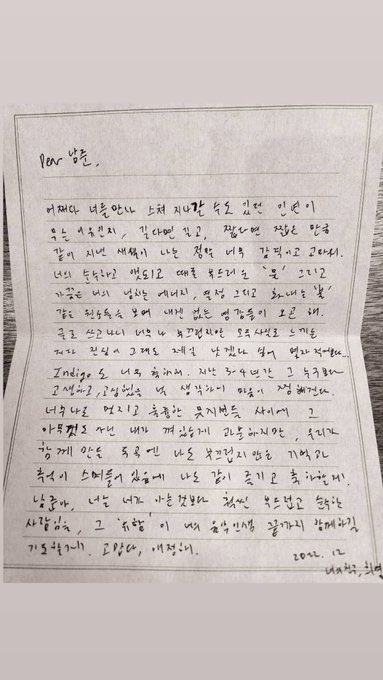 Dear 남준,
어쩌다 너를 만나 스쳐 지나갈 수도 있던 인연이
무슨 이유인지, 길다면 길고, 짧다면 짧은 만큼
같이 지낸 새벽이 나는 정말 너무 감격이고 고마워.
너의 순수하고 맹도고 때론 부드러운 '물' 그리고
가끔은 너의 넘치는 에너지, 열정 그리고 화내는 '불'
같은 원소들을 보며 내게 없는 영감들이 오고 해.
글로 쓰고나니 너무나 부끄럽지만 모두 사실로 느끼는
거라 진심이 그대로 제일 낫겠다 싶어 열자 적어보다..
Indigo도 너무 축하해. 지난 3-4년간 그 누구보다
고생하고, 고심했을 널 생각하니 맘이 찡해진다.
너무나도 멋지고 훌륭한 뮤지션분들 사이에 그
아무것도 아닌 내가 껴있는게 과분하지만, 우리가
함께 만든 두곡엔 나도 부끄럽지 않은 기억과
추억이 스며들어 있음에 나도 같이 즐기고 축하할게!
남준아, 너는 너가 아는것보다 훨씬 부드럽고 순수한
사람임을, 그 '유함'이 너의 음악인생 끝까지 함께하길
기도할게. 고맙다, 애정해.
2022. 12
너의 친구, 희연